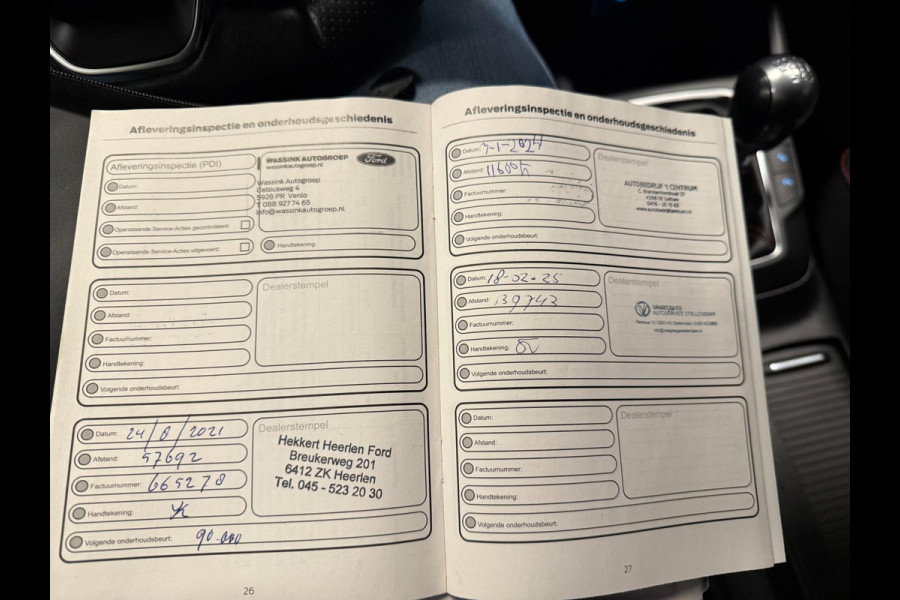 Afleveringsinspectie en onderhoudsgeschiedenis
Afleveringsinspectie (PDI)
Datum:
Afstand:
Openstaande Service-Acties gecontroleerd:
Openstaande Service-Acties uitgevoerd:
WASSINK AUTOGROEP
wassinkautogroep.nl
Ford
Wassink Autogroep
Celsiusweg 4
5928 PR Venlo
T 088 927 74 65
info@wassinkautogroep.nl
Handtekening:
Datum:
Afstand:
Factuurnummer:
Handtekening:
Volgende onderhoudsbeurt:
Dealerstempel
Datum: 24/8/2021
Afstand: 57692
Factuurnummer: 665278
Handtekening:
Volgende onderhoudsbeurt: 90.000
Dealerstempel
Hekkert Heerlen Ford
Breukerweg 201
6412 ZK Heerlen
Tel. 045 - 523 20 30
26
Afleveringsinspectie en onderhoudsgeschiedenis
Datum: -1-2024
Afstand: 116004
Factuurnummer:
Handtekening:
Volgende onderhoudsbeurt:
Dealerstempel
AUTOBEDRIJF 'T CENTRUM
Datum: 18-02-25
Afstand: 139743
Factuurnummer:
Handtekening:
Volgende onderhoudsbeurt:
Dealerstempel
AUTOSERVICE STELLENDAM
Datum:
Afstand:
Factuurnummer:
Handtekening:
Volgende onderhoudsbeurt:
Dealerstempel
27